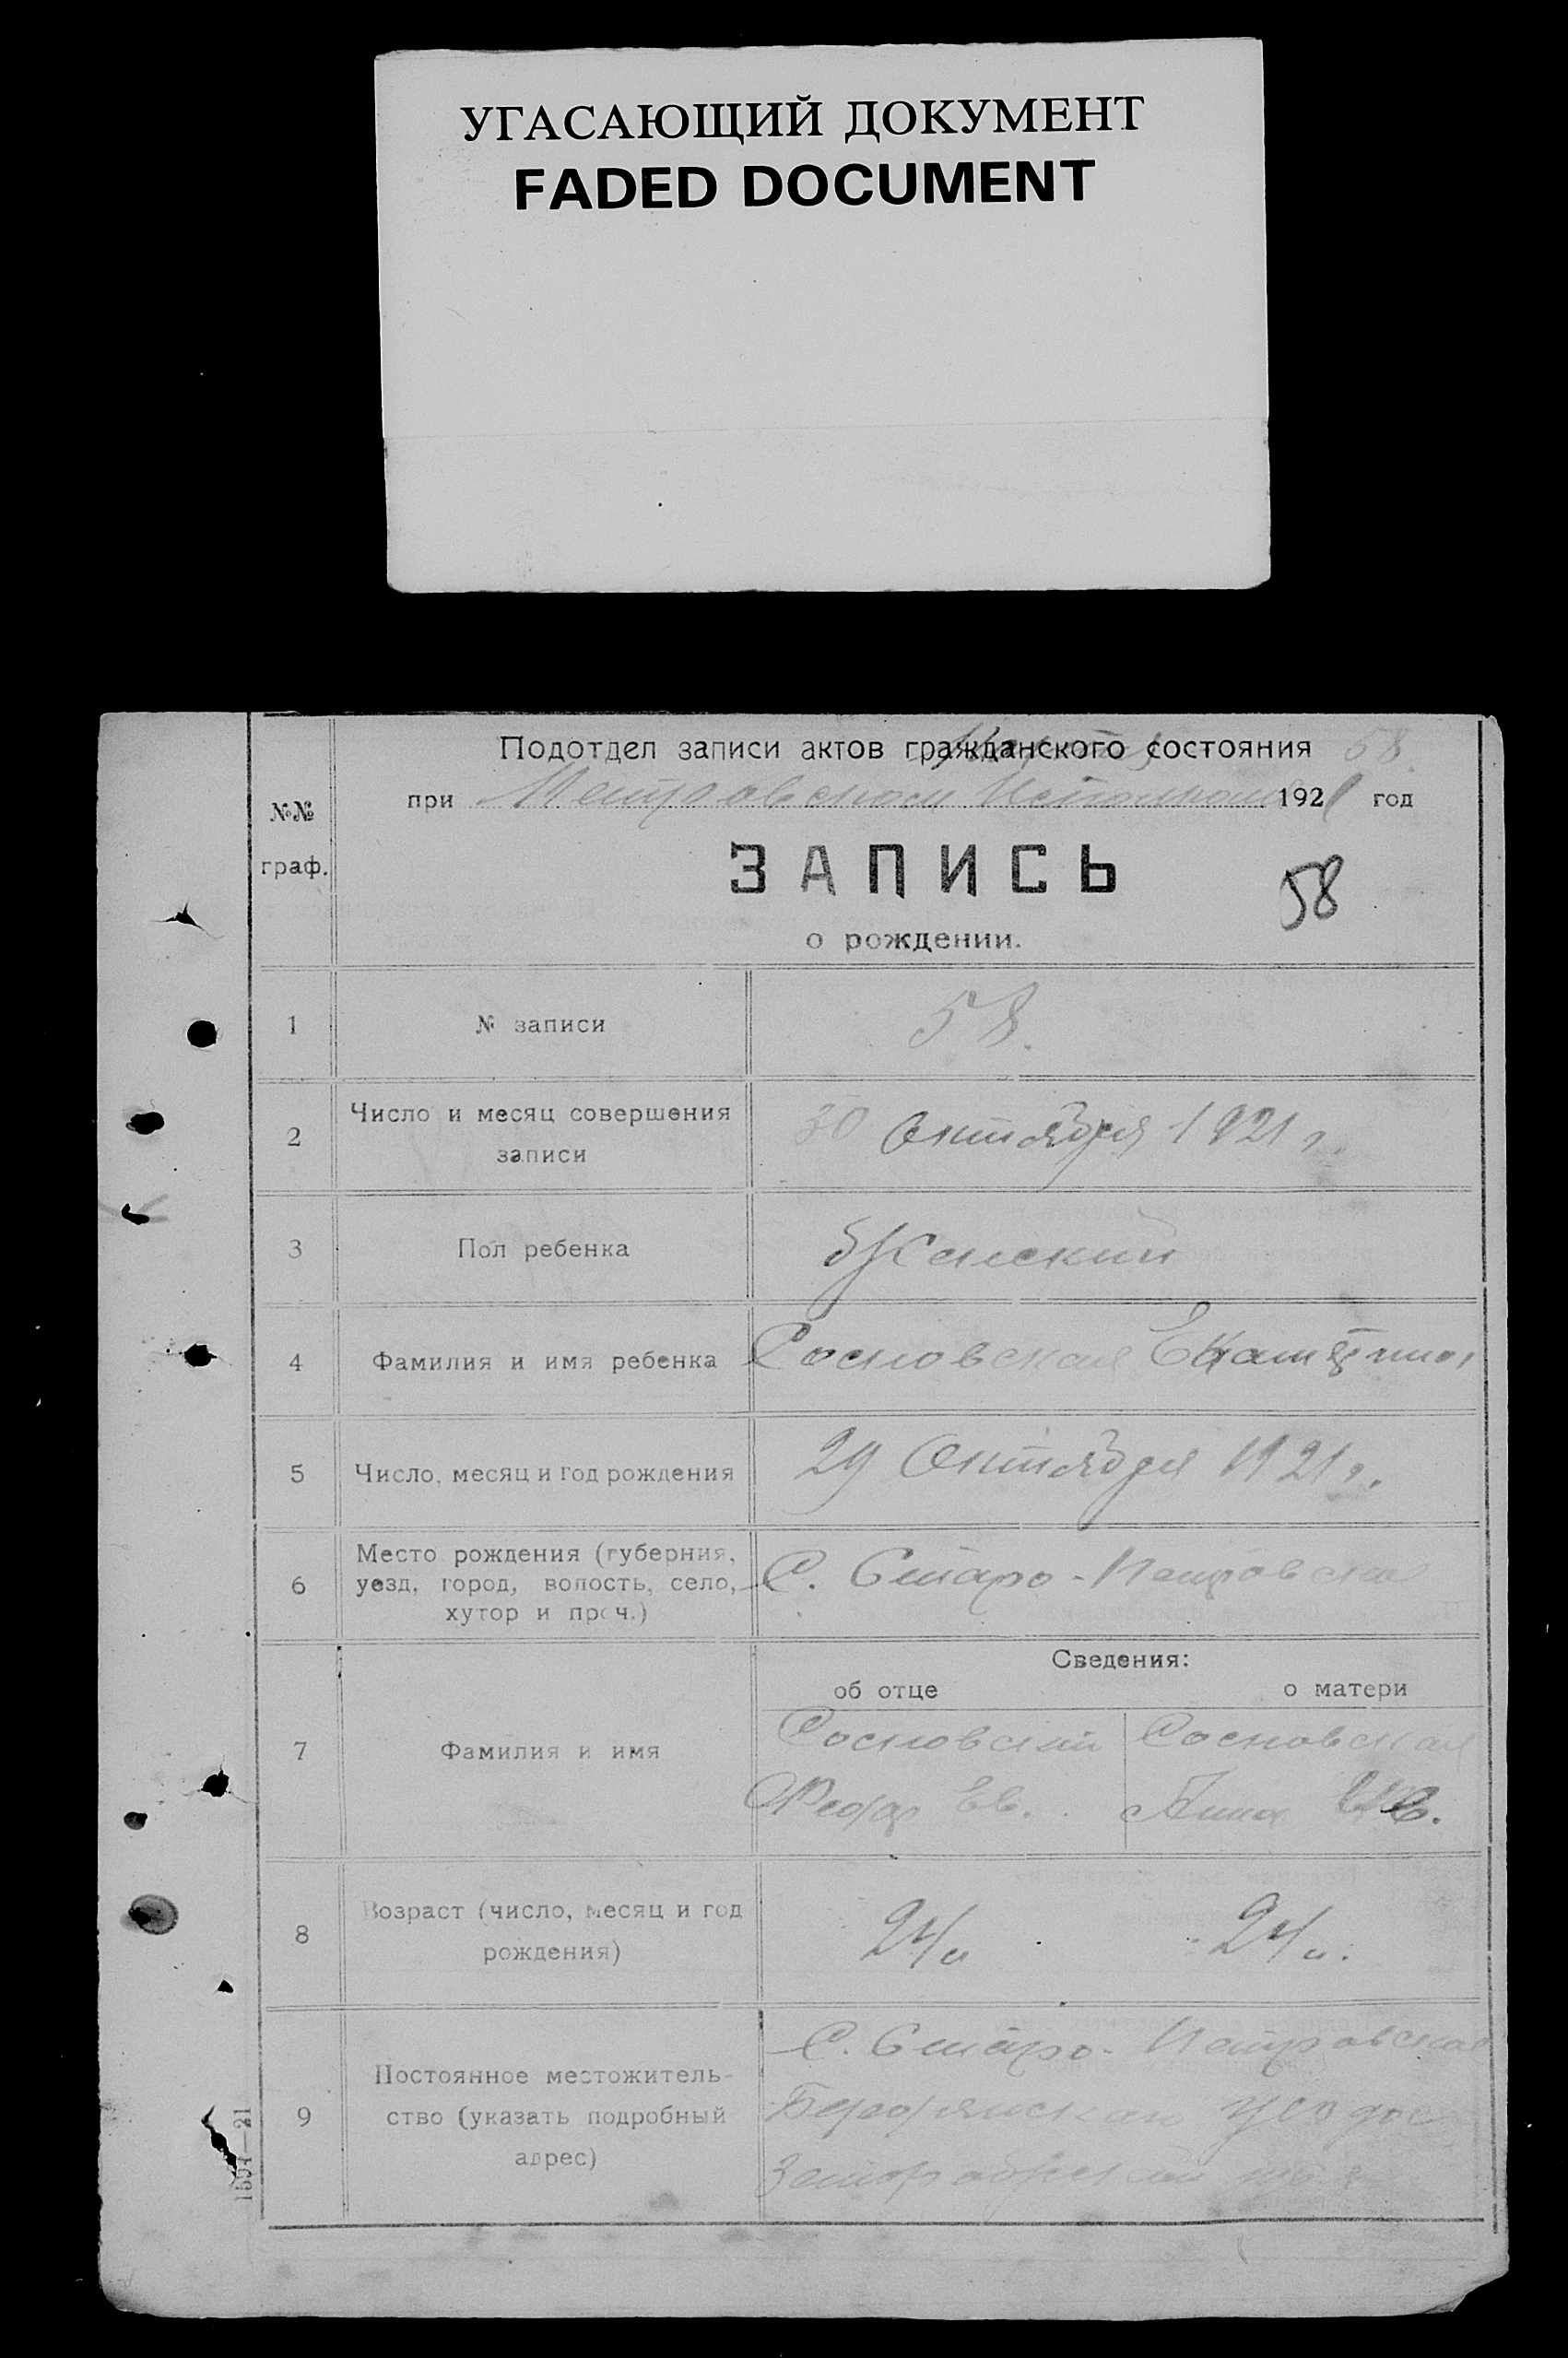 УГАСАЮЩИЙ ДОКУМЕНТ
FADED DOCUMENT
Подотдел записи актов гражданского состояния 58.
при Петровском Исполкоме 1921 год
№№
граф.
ЗАПИСЬ
58
о рождении.
1 № записи 58.
2 Число и месяц совершения
записи
30 Октября 1921 г.
3 Пол ребенка Женский
4 Фамилия и имя ребенка Сосновская Екатерина
5 Число, месяц и год рождения 29 Октября 1921 г.
6 Место рождения (губерния,
уезд, город, волость, село,
хутор и проч.)
С. Старо-Петровская
Сведения:
об отце о матери
7 Фамилия и имя
Сосновский Сосновская
Федор Ев. Анна
8 Возраст (число, месяц и год
рождения)
24 24
9 Постоянное местожитель-
ство (указать подробный
адрес)
С. Старо-Петровская
Бердянского уезда
1501—21